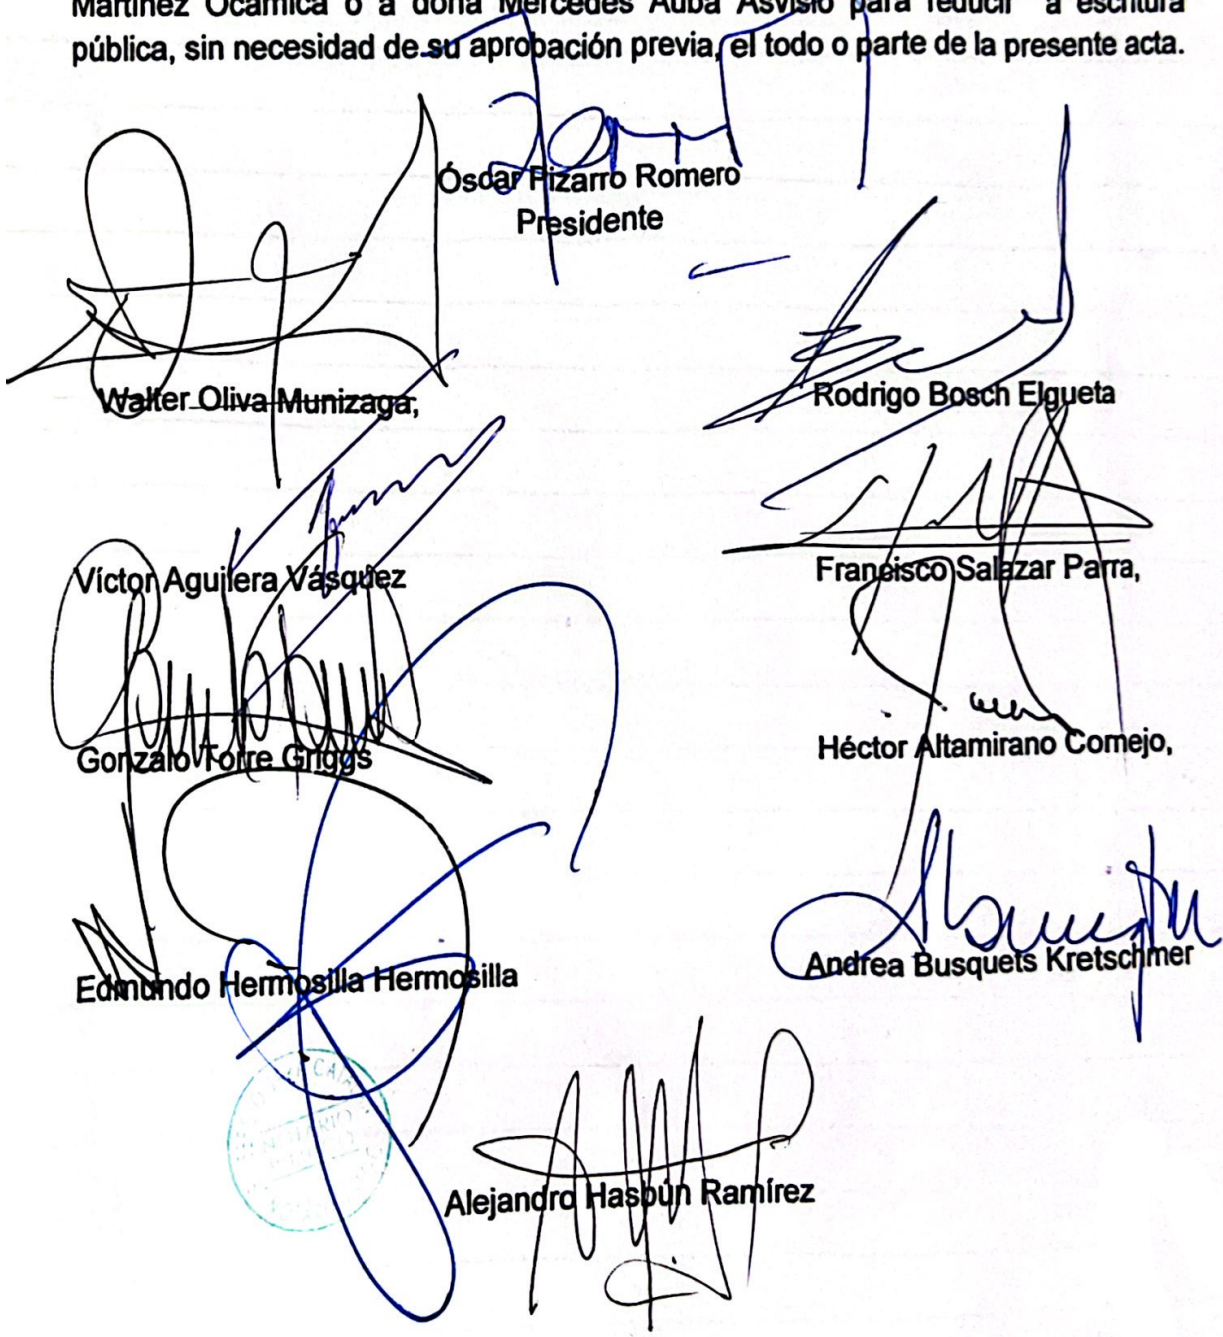 Martínez Ocamica o a doña Mercedes Auba Asvisio para reducir a escritura
pública, sin necesidad de su aprobación previa, el todo o parte de la presente acta.
Óscar Pizarro Romero
Presidente
Walter Oliva Munizaga,
Rodrigo Bosch Elgueta
Víctor Aguilera Vásquez
Francisco Salazar Parra,
Gonzalo Torre Griggs
Héctor Altamirano Cornejo,
Edmundo Hermosilla Hermosilla
Andrea Busquets Kretschmer
Alejandro Hasbún Ramírez